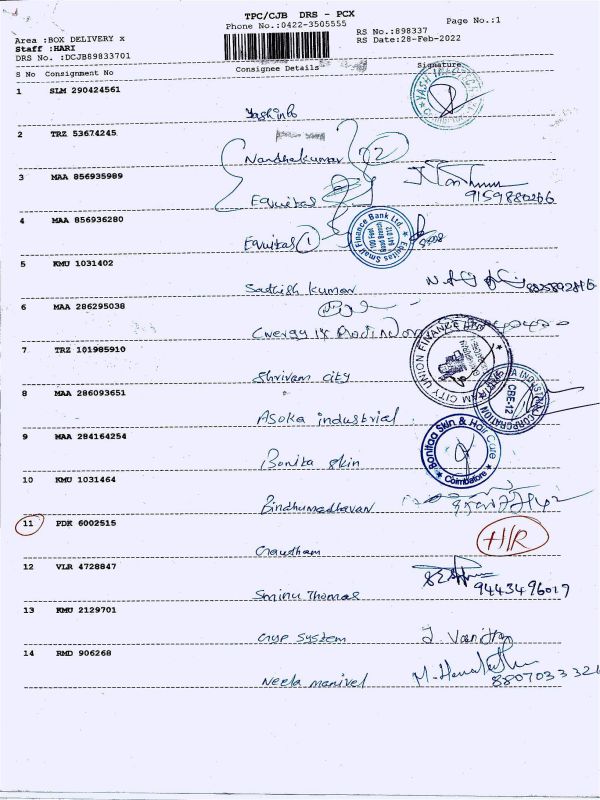 TPC/CJB DRS - PCX
Phone No.:0422-3505555
Page No.:1
Area :BOX DELIVERY x
RS No.:898337
Staff :HARI
RS Date:28-Feb-2022
DRS No. :DCJB89833701
S No Consignment No Consignee Details Signature
1 SLM 290424561
2 TRZ 53674245
Nandhakumar
3 MAA 856935989
Equitas 9159880266
4 MAA 856936280
Equitas 1
Equitas Small Finance Bank Ltd.
5 KMU 1031402
Sadhish kumar
6 MAA 286295038
7 TRZ 101985910
Shriram city
CITY UNION FINANCE LTD
8 MAA 286093651
Asoka industrial
CBE-12
9 MAA 284164254
Bonita skin
Bonitaa Skin & Hair Care
Coimbatore
10 KMU 1031464
Bindhumadhavan
11 PDK 6002515
H/R
Gautham
12 VLR 4728847
Sminu Thomas 9443496017
13 KMU 2129701
Gyp System
14 RMD 906268
Neela manivel